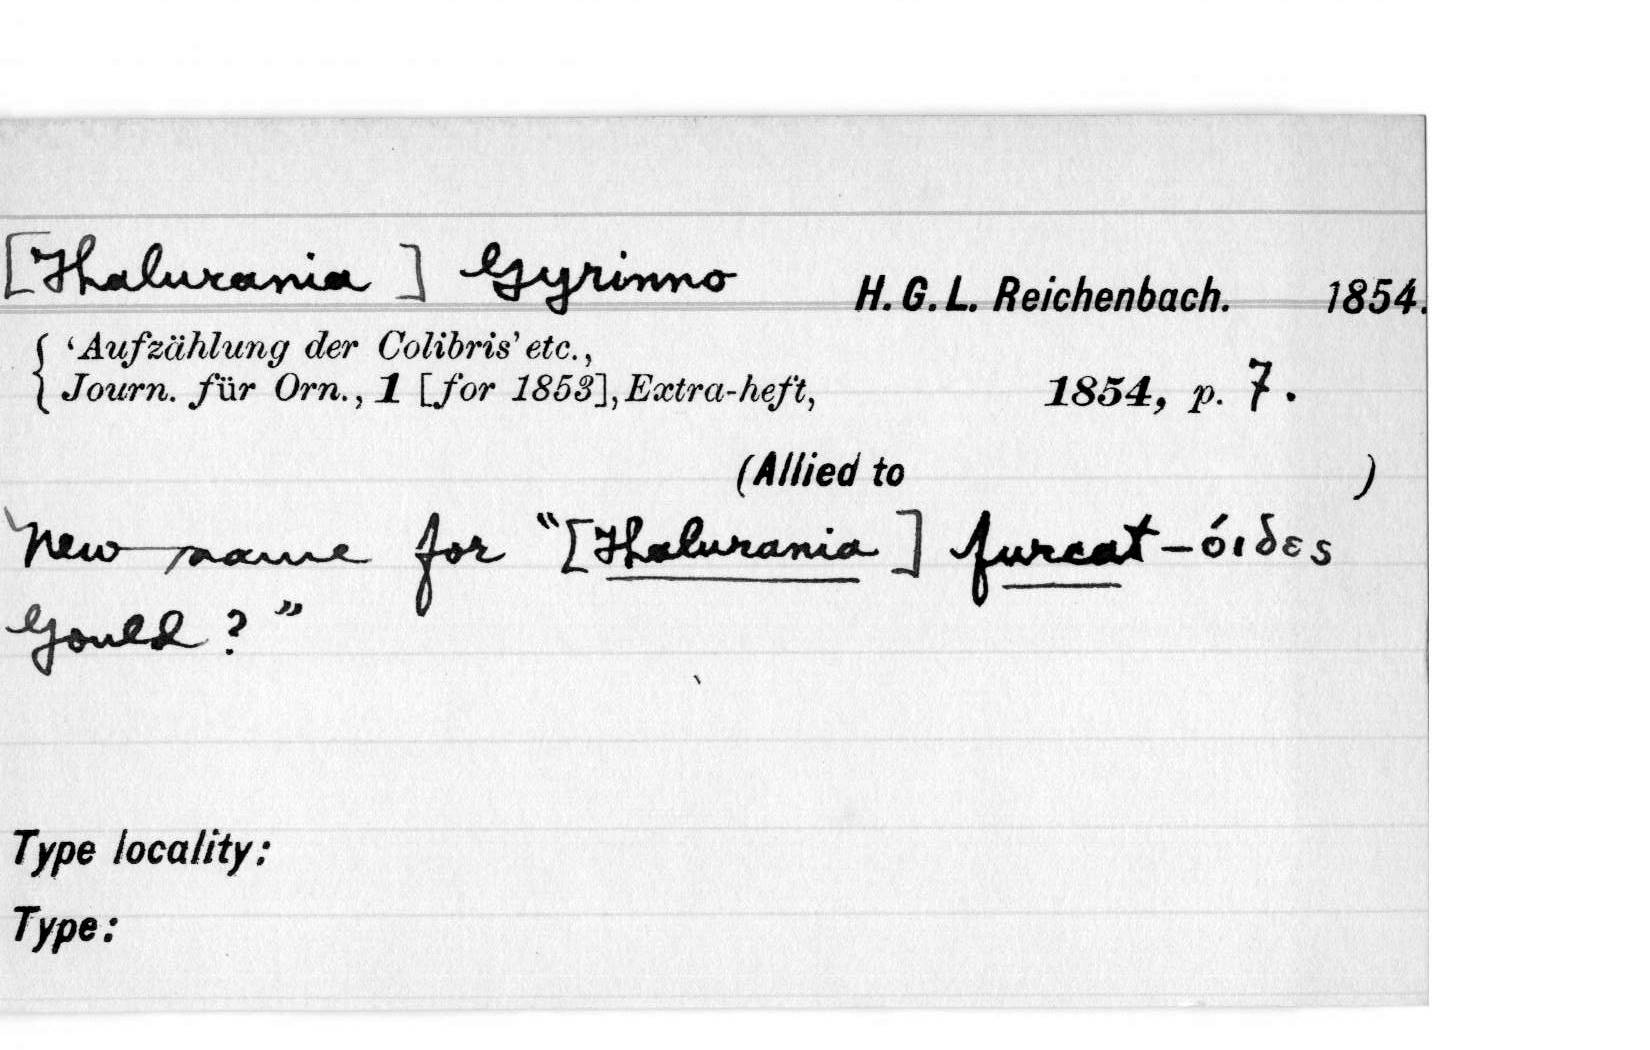 [Thalurania] Gyrinno H. G. L. Reichenbach. 1854.
'Aufzählung der Colibris' etc.,
Journ. für Orn., 1 [for 1853], Extra-heft, 1854, p. 7.
(Allied to )
New name for "[Thalurania] furcat-όιδεs
Gould ? "
Type locality:
Type: